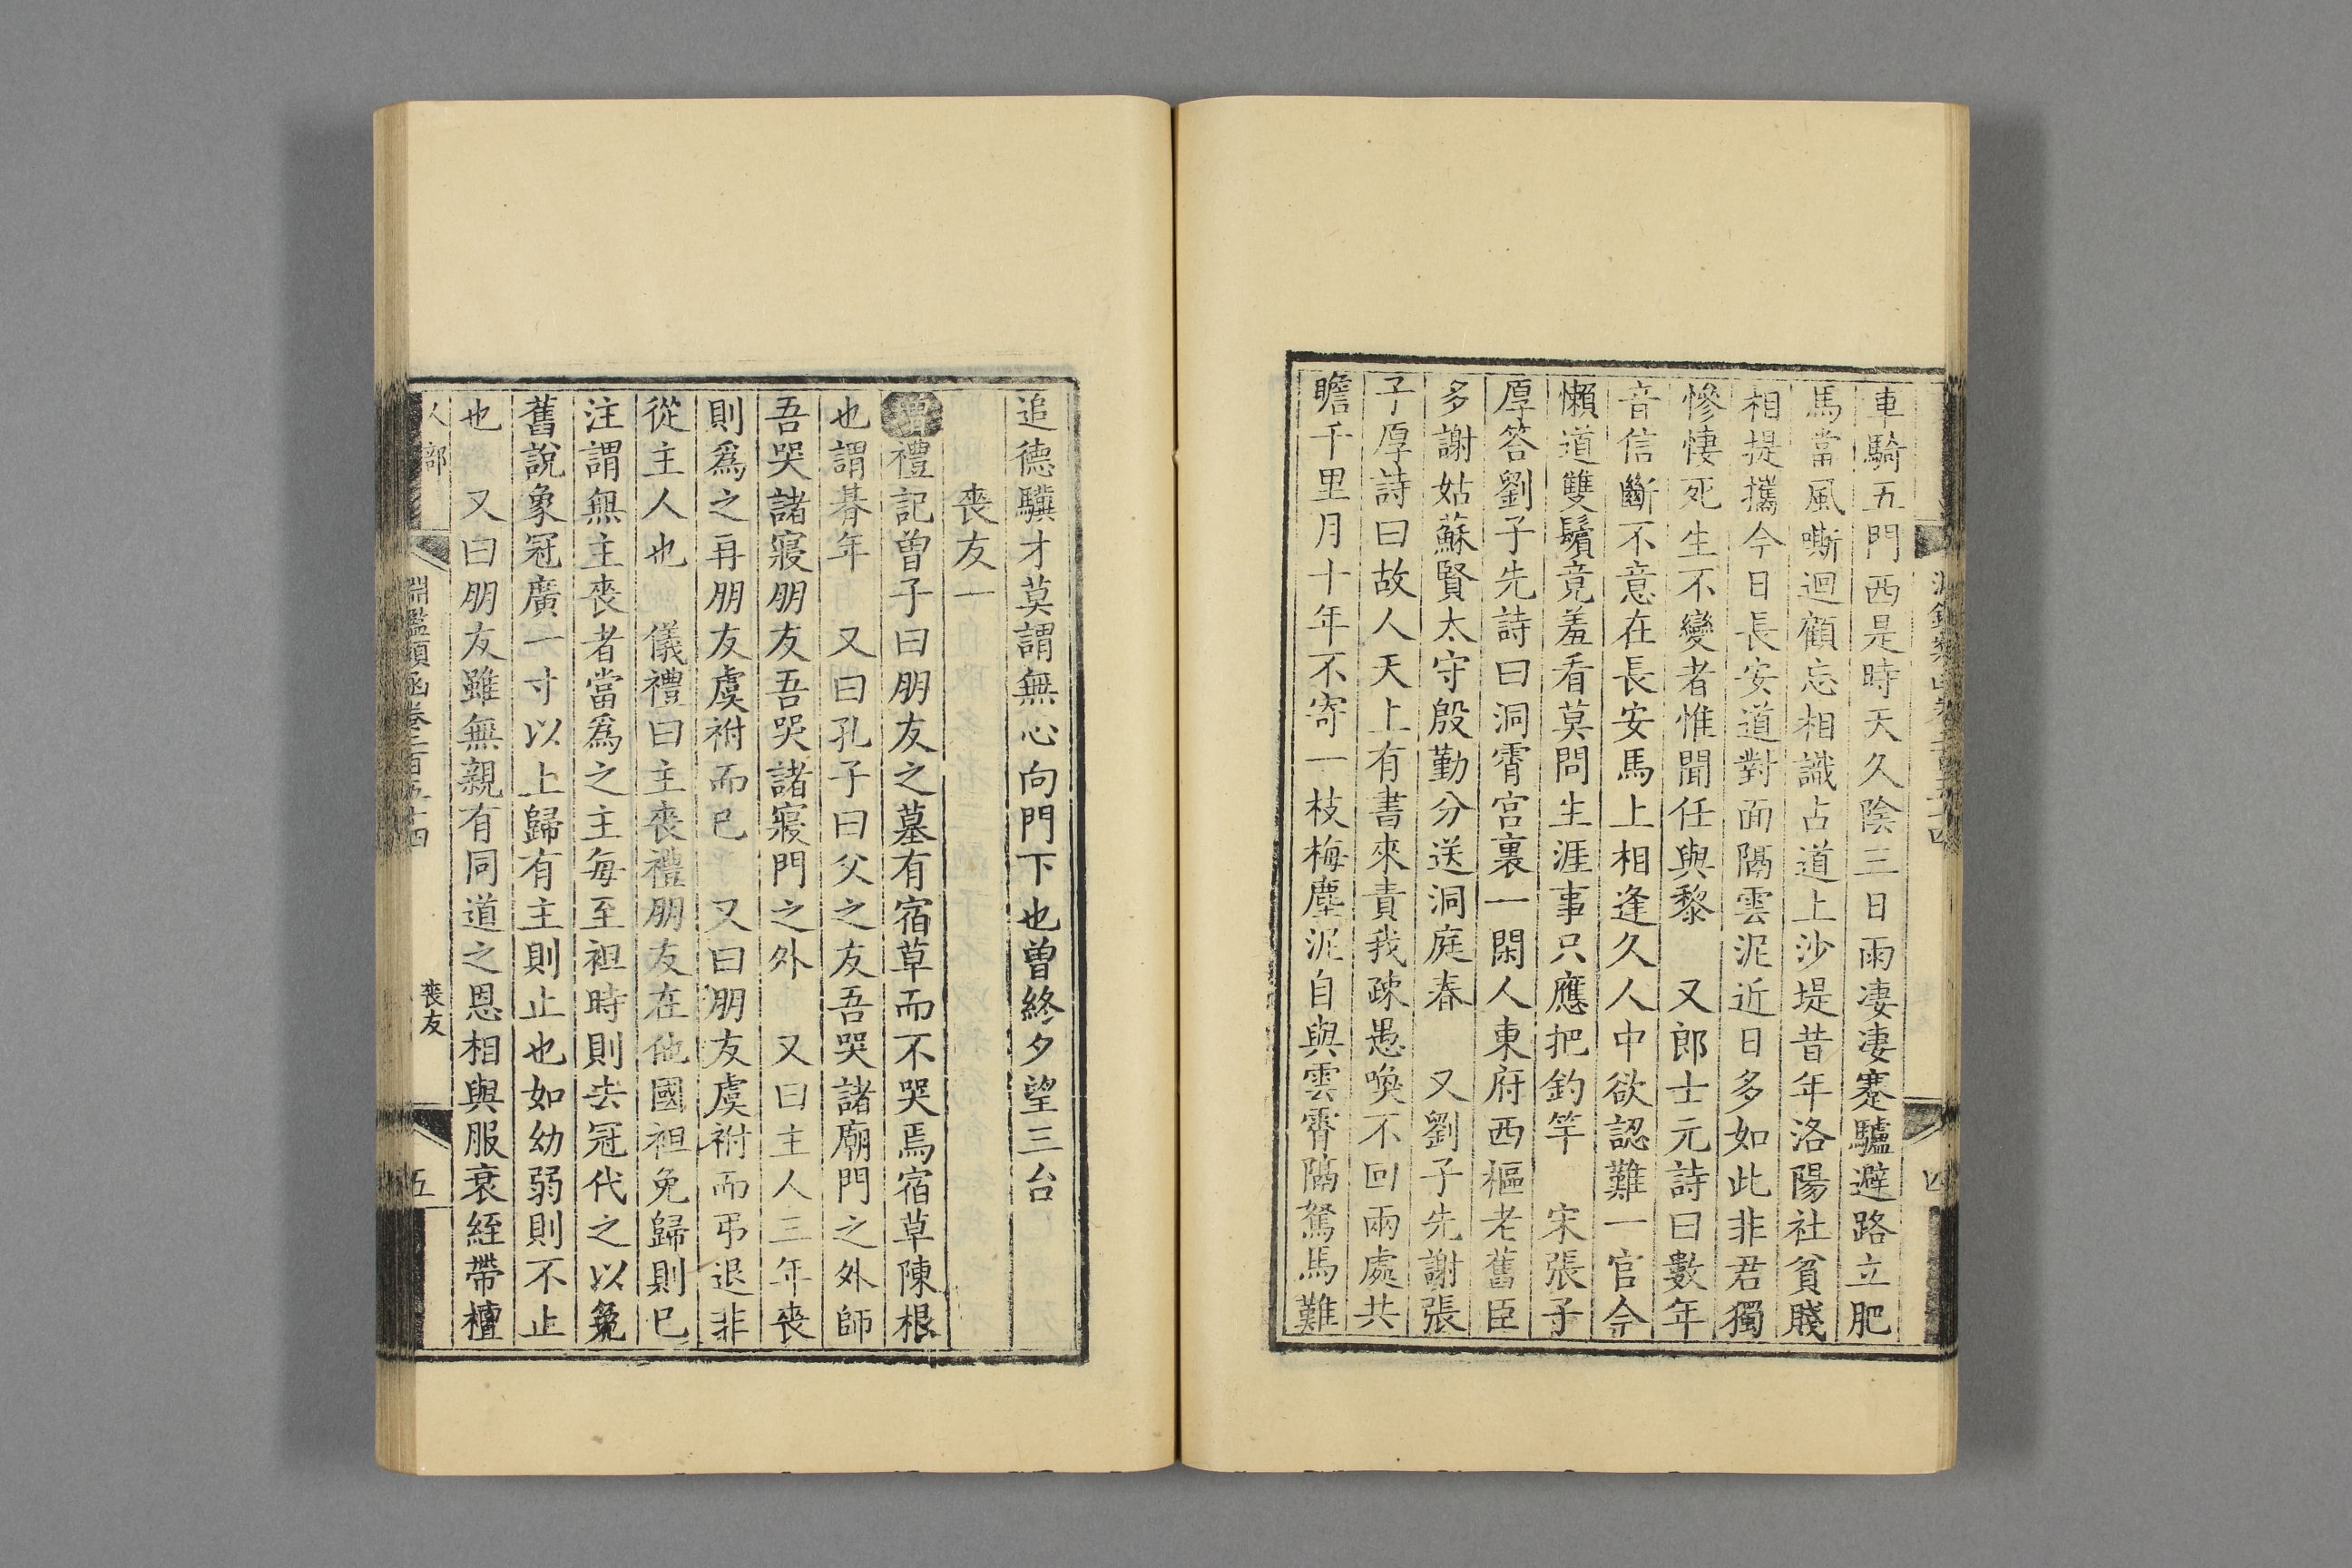 車騎五門西是時天久陰三日雨淒淒蹇驢避路立肥
馬當風嘶迴顧忘相識占道上沙堤昔年洛陽社貧賤
相提攜今日長安道對面隔雲泥近日多如此非君獨
慘悽死生不變者惟聞任與黎　又郎士元詩曰數年
音信斷不意在長安馬上相逢久人中欲認難一官今
懶道雙鬢竟羞看莫問生涯事只應把釣竿　宋張子
厚答劉子先詩曰洞霄宮裏一閑人東府西樞老舊臣
多謝姑蘇賢太守殷勤分送洞庭春　又劉子先謝張
子厚詩曰故人天上有書來責我疎愚喚不回兩處共
瞻千里月十年不寄一枝梅塵泥自與雲霄隔駑馬難
四
追德驥才莫謂無心向門下也曾終夕望三台
喪友一
增禮記曾子曰朋友之墓有宿草而不哭焉宿草陳根
也謂朞年　又曰孔子曰父之友吾哭諸廟門之外師
吾哭諸寢朋友吾哭諸寢門之外　又曰主人三年喪
則爲之再朋友虞祔而已　又曰朋友虞祔而弔退非
從主人也　儀禮曰主喪禮朋友在他國袒免歸則已
注謂無主喪者當爲之主每至袒時則去冠代之以免
舊說象冠廣一寸以上歸有主則止也如幼弱則不止
也　又曰朋友雖無親有同道之恩相與服衰絰帶檀
人部
淵鑑類函卷二百五十四
喪友
五